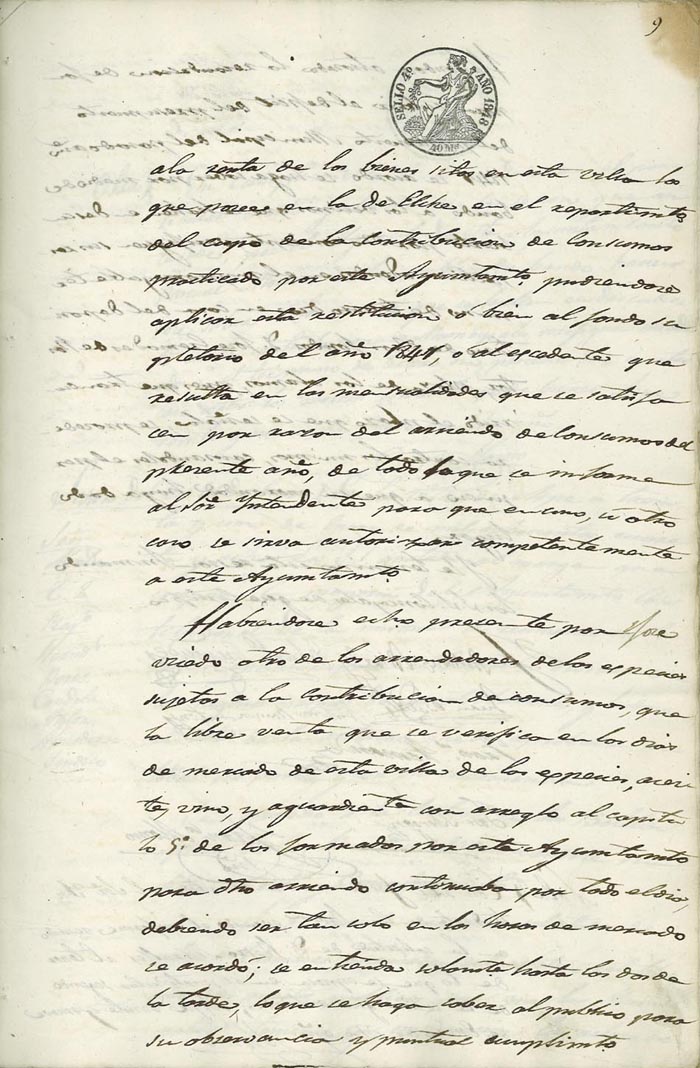 9
SELLO 4º AÑO 1848
40 Ms.
a la renta de los bienes sitos en esta villa los
que posee en la de Elche en el repartimto.
del cupo de la Contribucion de Consumos
practicado por este Ayuntamto. pudiendose
aplicar esta restitucion ó bien al fondo su
pletorio del año 1847, ó al escedente que
resulta en las mensualidades que se satisfa
cen por razon del arriendo de Consumos del
presente año, de todo lo que se informe
al Sor. Yntendente para que en uno, ú otro
caso se sirva autorizar competentemente
a este Ayuntamto.
Habiendose echo presente por
otro de los arrendadores de las especies
sujetas a la contribucion de consumos, que
la libre venta que se verifica en los dias
de mercado de esta villa de las especies, acei
te, vino, y aguardiente con arreglo al capitu
lo 5º. de los formados por este Ayuntamto
para dho arriendo continuaba por todo el dia,
debiendo ser tan solo en las horas de mercado
se acordó; se entienda solamte hasta las dos de
la tarde, lo que se haga saber al publico para
su observancia y puntual cumplimto.